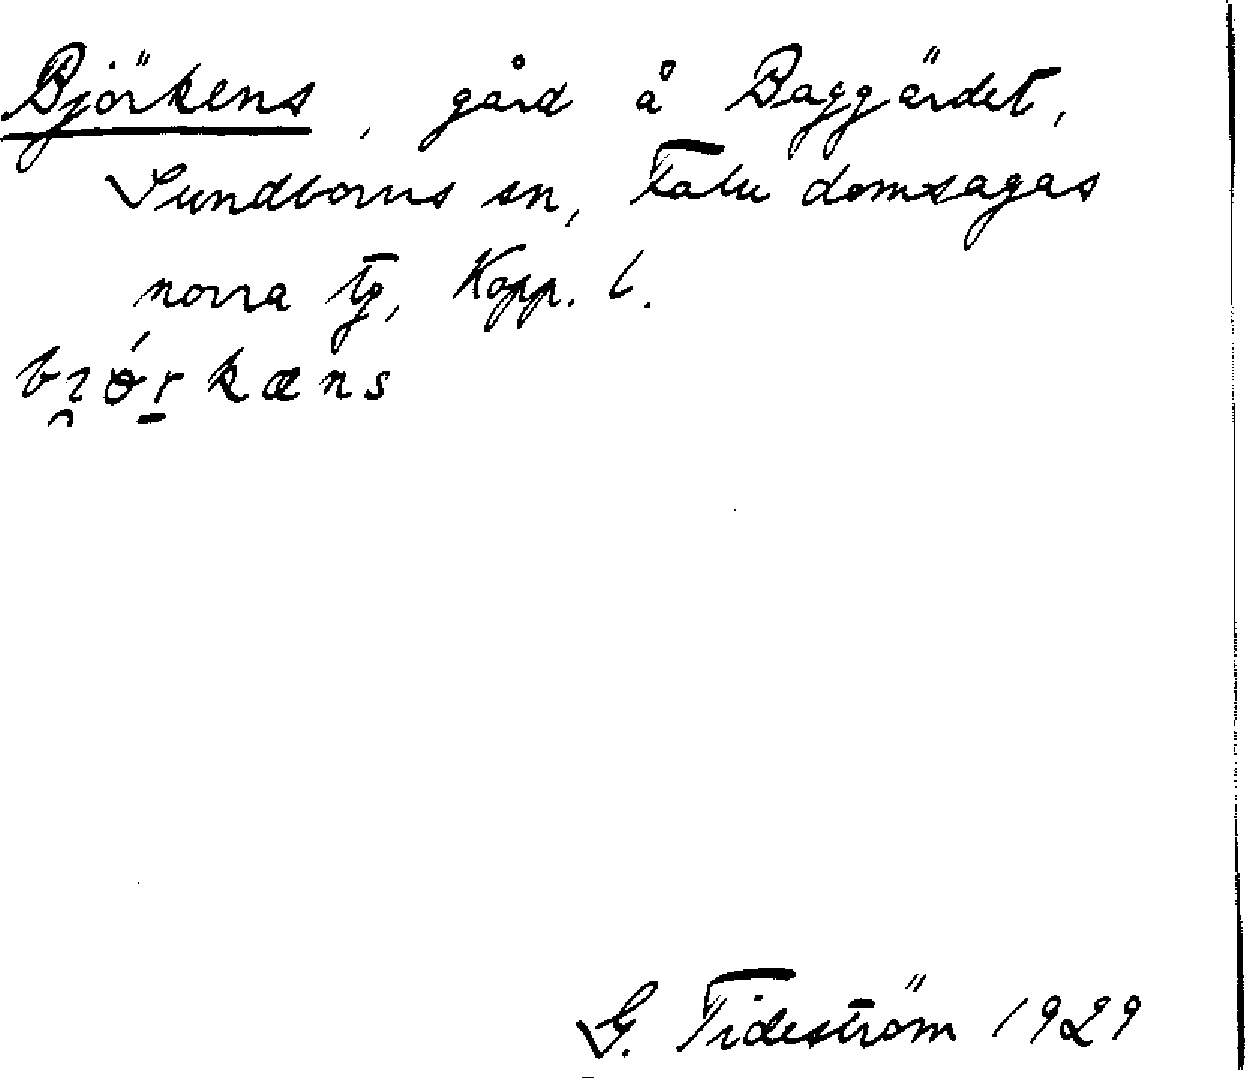 Björkens, gård å Baggärdet,
Sundborns sn, Falu domsagas
norra tg, Kopp. l.
bi̯ǿr̠kæns
G. Tideström 1929